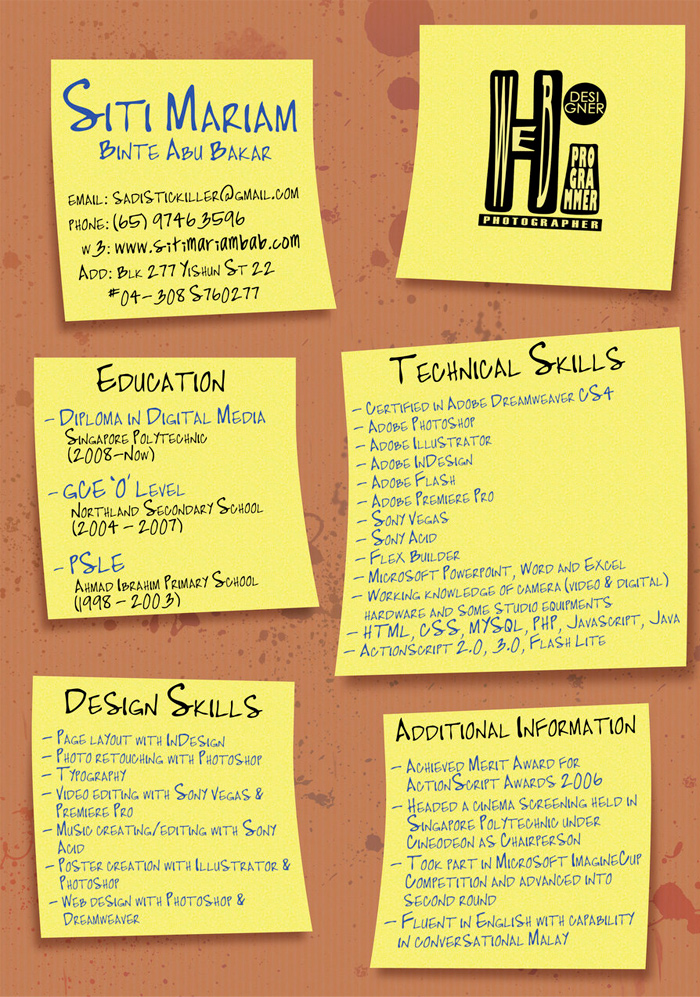 Siti Mariam
Binte Abu Bakar
email: sadistickiller@gmail.com
phone: (65) 9746 3596
w3: www.sitimariambab.com
Add: Blk 277 Yishun St 22
#04-308 S760277
WEB
DESI
GNER
PRO
GRA
MMER
PHOTOGRAPHER
Education
- Diploma in Digital Media
Singapore Polytechnic
(2008-Now)
- GCE 'O' Level
Northland Secondary School
(2004 - 2007)
- PSLE
Ahmad Ibrahim Primary School
(1998 - 2003)
Technical Skills
- Certified in Adobe Dreamweaver CS4
- Adobe Photoshop
- Adobe Illustrator
- Adobe InDesign
- Adobe Flash
- Adobe Premiere Pro
- Sony Vegas
- Sony Acid
- Flex Builder
- Microsoft Powerpoint, Word and Excel
- Working knowledge of camera (video & digital)
hardware and some studio equipments
- HTML, CSS, MYSQL, PHP, Javascript, Java
- ActionScript 2.0, 3.0, Flash Lite
Design Skills
- Page layout with InDesign
- Photo retouching with Photoshop
- Typography
- Video editing with Sony Vegas &
Premiere Pro
- Music creating/editing with Sony
Acid
- Poster creation with Illustrator &
Photoshop
- Web design with Photoshop &
Dreamweaver
Additional Information
- Achieved Merit Award for
ActionScript Awards 2006
- Headed a cinema screening held in
Singapore Polytechnic under
Cineodeon as Chairperson
- Took part in Microsoft ImagineCup
Competition and advanced into
second round
- Fluent in English with capability
in conversational Malay